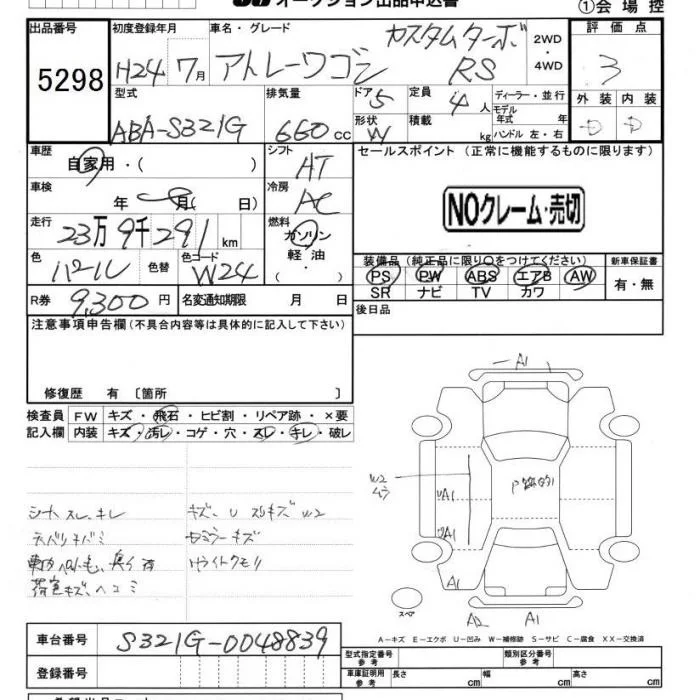 オークション出品申込書
①会場控
出品番号
5298
初度登録年月
H24 7月
車名・グレード
アトレーワゴン
カスタムターボ
RS
2WD
・
4WD
評価点
3
外装 内装
D D
型式
ABA-S321G
排気量
660 cc
ドア 5
定員 4 人
形状 W
積載 kg
ディーラー・並行
モデル
年式 年
ハンドル 左・右
車歴
自家用・( )
シフト
AT
セールスポイント (正常に機能するものに限ります)
NOクレーム・売切
車検
年 月( 日)
冷房
AC
走行
23万9千291 km
燃料
ガソリン
軽油
・
( )
色
パール
色替
色コード
W24
装備品 (純正品に限り○をつけてください)
PS PW ABS エアB AW
SR ナビ TV カワ
新車保証書
有・無
R券 9,300円
名変通知期限 月 日
後日品
注意事項申告欄(不具合内容等は具体的に記入して下さい)
修復歴 有 〔箇所 〕
検査員
記入欄
FW キズ・飛石・ヒビ割・リペア跡・×要
内装 キズ・汚レ・コゲ・穴・スレ・キレ・破レ
シート スレ、キレ
キズ、U スリキズ W2
荷室キズ、ヘコミ
ライトクモリ
A1
W2
ムラ
UA1
UA1
A1
A1
スペア
A-キズ E-エクボ U-凹み W-補修跡 S-サビ C-腐食 XX-交換済
車台番号 S321G-0048839
登録番号
型式指定番号
参考
類別区分番号
参考
車庫証明用
参考
長さ cm
幅 cm
高さ cm